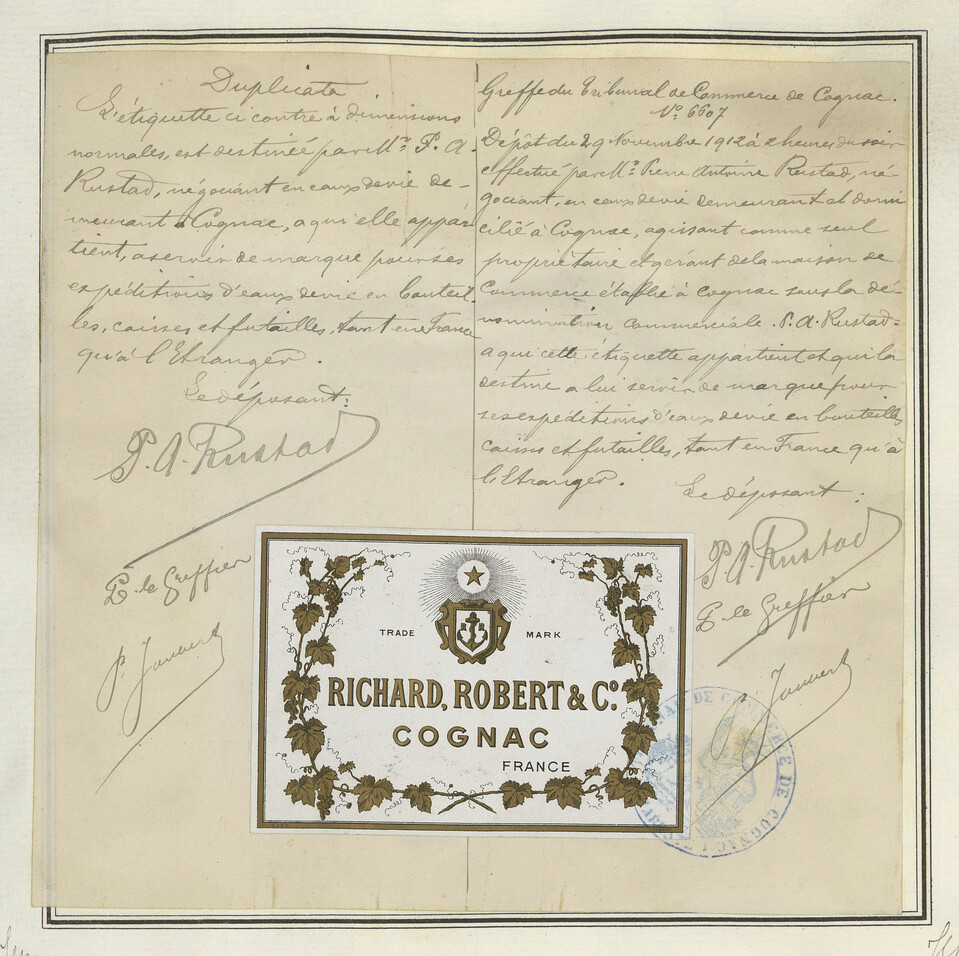 Duplicata
L'étiquette ci contre à dimensions
normales, est destinée par Mr. P. A.
Rustad, négociant en eaux devie de-
meurant à Cognac, a qui elle appar-
tient, a servir de marque pour ses
expéditions d'eaux devie en bouteil-
les, caisses et futailles, tant en France
qu'à l'Etranger.
Le déposant:
P. A. Rustad
P. le Greffier
Greffe du Tribunal de Commerce de Cognac.
No. 6607
Dépôt du 29 Novembre 1912 à 2 heures du soir
effectué par Mr. Pierre Antoine Rustad, né-
gociant, en eaux devie demeurant et domi
cilié à Cognac, agissant comme seul
propriétaire et gérant de la maison de
Commerce établie à Cognac sous la dé-
nomination commerciale P. A. Rustad-
a qui cette étiquette appartient et qui la
destine a lui servir de marque pour
ses expéditions d'eaux devie en bouteilles
caisses et futailles, tant en France qu'à
l'Etranger.
Le déposant:
P. A. Rustad
P. le Greffier
TRADE MARK
RICHARD, ROBERT & Co.
COGNAC
FRANCE
DE COMMERCE DE COGNAC